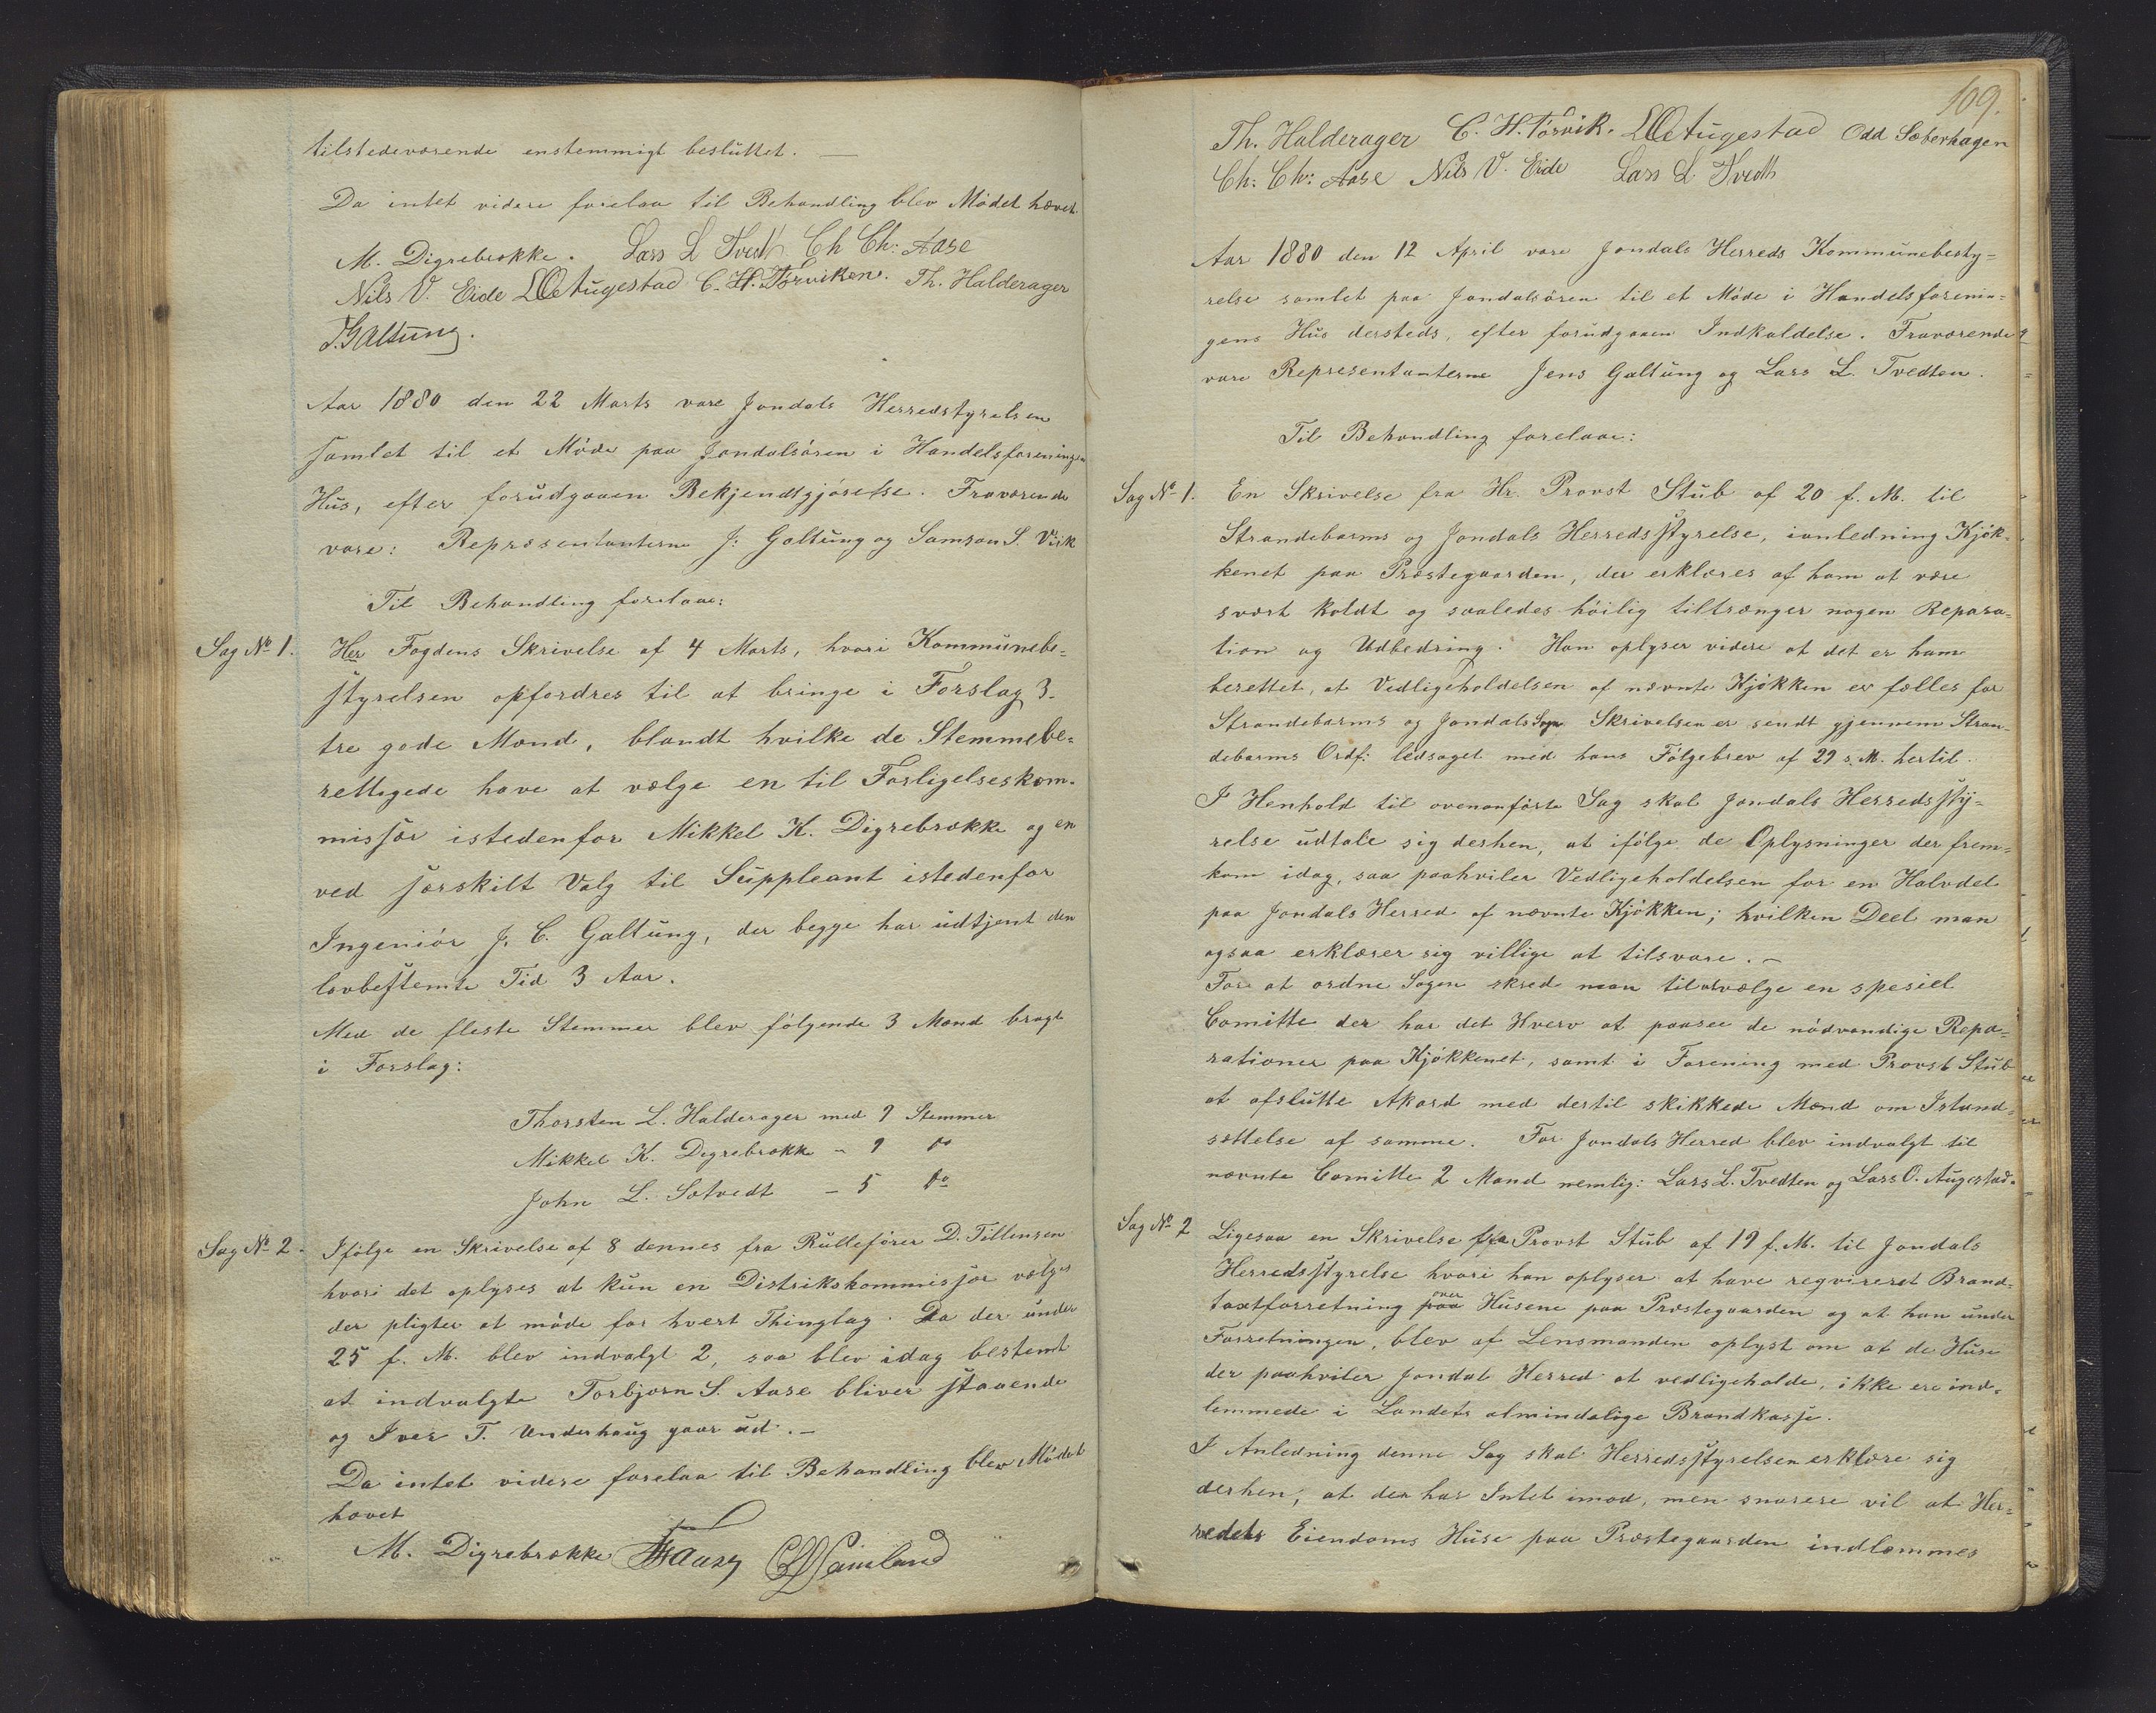 tilstedeværende enstemmigt besluttet. —
Da intet videre forelaa til Behandling blev Mödet hævet.
M. Digrebrække. Lars L Tvedt Ch Ch: Aase
Nils V. Eide LOAugestad C. H. Torviken. Th. Halderager
J. Galtung.
Aar 1880 den 22 Marts vare Jondals Herredstyrelsen
samlet til et Möde paa Jondalsören i Handelsforeningen
Hus, efter forudgaaen Bekjendtgjörelse. Fraværende
vare: Repræsentanterne J: Galtung og Samson S. Vik
Til Behandling forelaae:
Sag No 1. Her Fogdens Skrivelse af 4 Marts, hvori Kommunebe=
styrelsen opfordres til at bringe i Forslag 3-
tre gode Mænd, blandt hvilke de Stemmebe=
rettigede have at vælge en til Forligelseskom-
missær istedenfor Mikkel K. Digrebrække og en
ved særskilt Valg til Suppleant istedenfor
Ingeniör J. C. Galtung, der begge har udtjent den
lovbestemte Tid 3 Aar.
Med de fleste Stemmer blev fölgende 3 Mænd bragt
i Forslag:
Thorsten L. Halderager med 9 Stemmer
Mikkel K. Digrebrække - 9 do
John L. Solvedt - 5 do
Sag No 2. Ifölge en Skrivelse af 8 dennes fra Rulleförer D. Tillensen
hvori det oplyses at kun en Distrikskommissær vælges
der pligter at möde for hvert Thinglag. Da der under
25 f. M. blev indvalgt 2, saa blev idag bestemt
at indvalgte Torbjørn S. Aase bliver staaende
og Iver T. Underhaug gaar ud. —
Da intet videre forelaa til Behandling blev Mödet
hævet
M. Digrebrække
109.
Th. Halderager C. H. Torvik. LOAugestad Odd Sæverhagen
Ch: Chr: Aase Nils V. Eide Lars L. Tvedt
Aar 1880 den 12 April vare Jondals Herreds Kommunebesty=
relse samlet paa Jondalsören til et Möde i Handelsforenin=
gens Hus dersteds, efter forudgaaen Indkaldelse. Fraværende
vare Repræsentanterne Jens Galtung og Lars L. Tvedten.
Til Behandling forelaae:
Sag No 1. En Skrivelse fra Hr. Provst Stub af 20 f. M. til
Strandebarms og Jondals Herredsstyrelse, ianledning Kjök-
kenet paa Præstegaarden, der erklæres af ham at være
svært koldt og saaledes höilig tiltrænger nogen Repara-
tion og Udbedring. Han oplyser videre at det er ham
berettet, at Vedligeholdelsen af nævnte Kjökken er fælles for
Strandebarms og Jondals Sogn Skrivelsen er sendt gjennem Stran-
debarms Ordf: ledsaget med hans Fölgebrev af 29 s. M. hertil.
I Henhold til ovenanförte Sag skal Jondals Herredssty=
relse udtale sig derhen, at ifölge de Oplysninger der frem=
kom idag, saa paahviler Vedligeholdelsen for en Halvdel
paa Jondals Herred af nævnte Kjökken; hvilken Deel man
ogsaa erklærer sig villige at tilsvare. —
For at ordne Sagen skred man til at vælge en spesiel
Comitte der har det Hverv at paasee de nödvendige Repa=
rationer paa Kjökkenet, samt i Forening med Provst Stub
at afslutte Akord med dertil skikkede Mænd om Istand=
sættelse af samme. For Jondals Herred blev indvalgt til
nævnte Comitte 2 Mænd nemlig: Lars L. Tvedten og Lars O. Augestad.
Sag No 2 Ligesaa en Skrivelse fra Provst Stub af 19 f. M. til Jondals
Herredsstyrelse hvori han oplyser at have reqvireret Brand-
taxtforretning paa over Husene paa Præstegaarden og at han under
Forretningen, blev af Lensmanden oplyst om at de Huse
der paahviler Jondal Herred at vedligeholde, ikke ere ind-
lemmede i Landets almindelige Brandkasse.
I Anledning denne Sag skal Herredsstyrelsen erklære sig
derhen, at den har Intet imod, men snarere vil at Her=
redets Eiendoms Huse paa Præstegaarden indlemmes